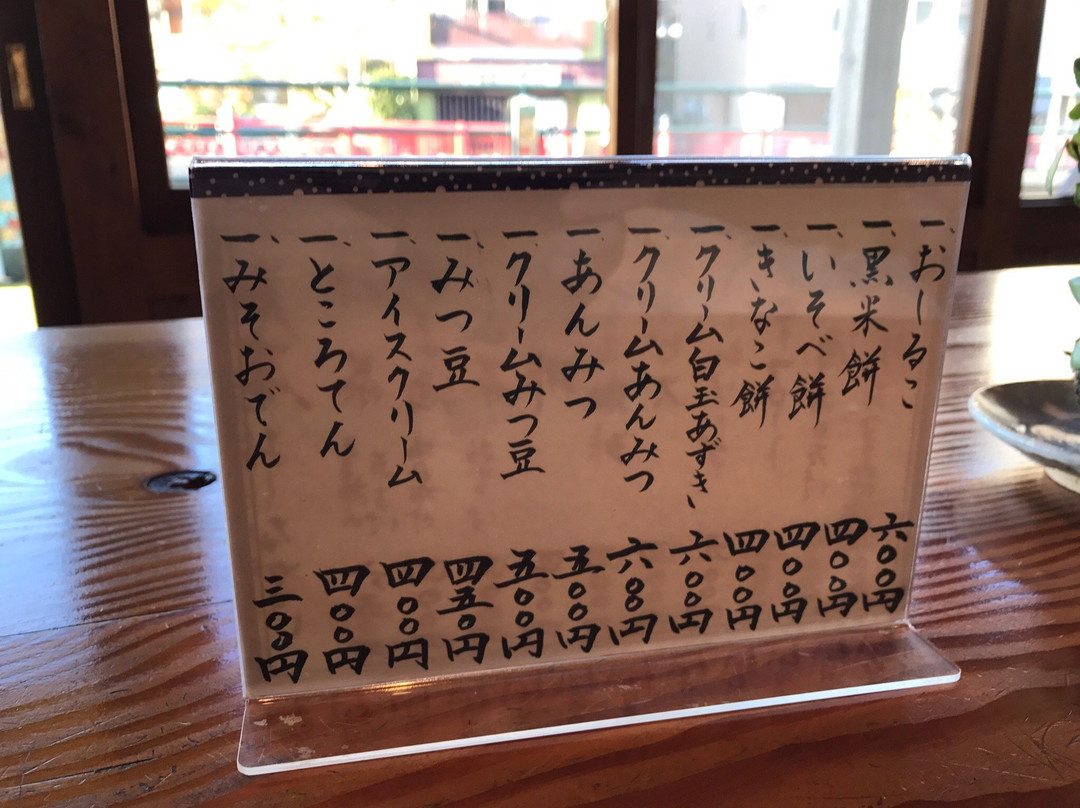 一、おしるこ 六〇〇円
一、黒米餅 四〇〇円
一、いそべ餅 四〇〇円
一、きなこ餅 四〇〇円
一、クリーム白玉あずき 六〇〇円
一、クリームあんみつ 六〇〇円
一、あんみつ 五〇〇円
一、クリームみつ豆 五〇〇円
一、みつ豆 四五〇円
一、アイスクリーム 四〇〇円
一、ところてん 四〇〇円
一、みそおでん 三〇〇円